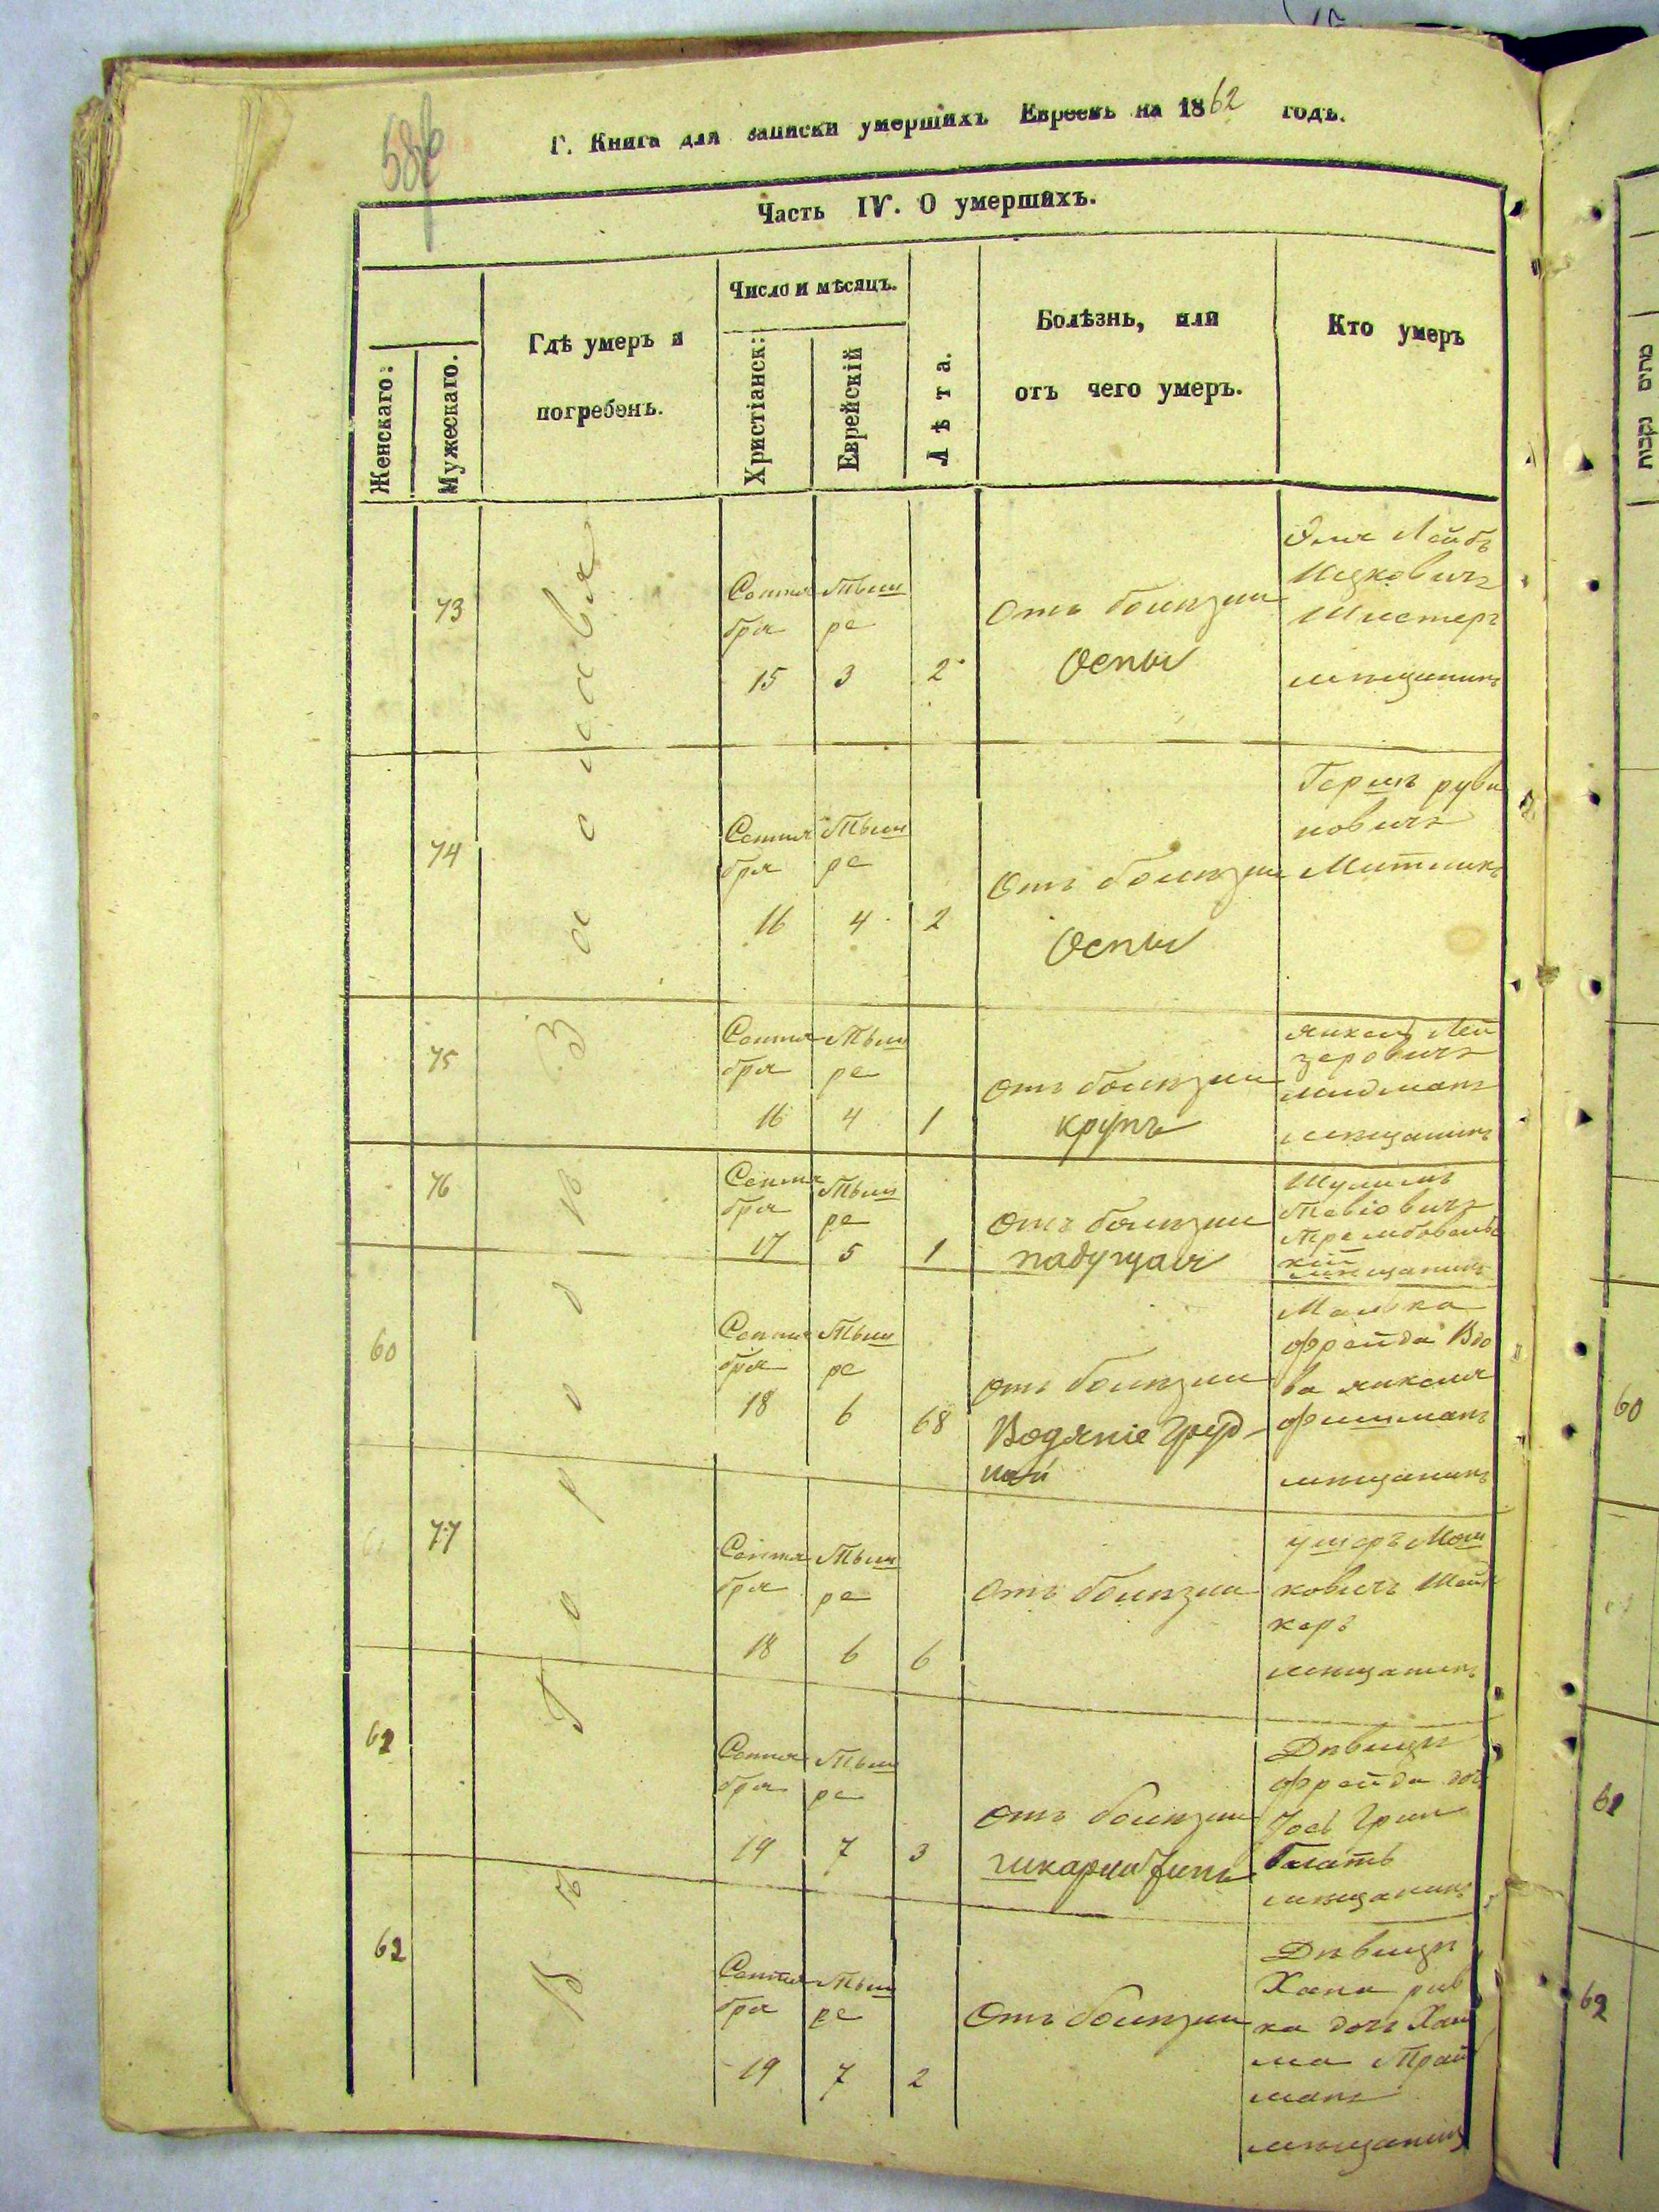 586
Г. Книга для записки умершихъ Евреевъ на 1862 годъ.
Часть IV. О умершихъ.
Женскаго:
Мужескаго.
Гдѣ умеръ и
погребенъ.
Число и мѣсяцъ.
Христіанск:
Еврейскій
Лѣта.
Болѣзнь, или
отъ чего умеръ.
Кто умеръ
Въ городѣ Заславля
73
Сентя
бря
15
Тыш
ре
3
2
Отъ болѣзни
Оспы
Лейбъ
Ицковичъ
Шистеръ
мѣщанинъ
74
Сентя
бря
16
Тыш
ре
4
2
Отъ болѣзни
Оспы
Гершъ руви
новичъ
Митникъ
75
Сентя
бря
16
Тыш
ре
4
1
Отъ болѣзни
крупъ
Янкель Лей
зеровичъ
мѣщанинъ
76
Сентя
бря
17
Тыш
ре
5
1
Отъ болѣзни
падучая
Шулимъ
Тевіовичъ
мѣщанинъ
60
Сентя
бря
18
Тыш
ре
6
68
Отъ болѣзни
Водяніе Груд-
ной
Малька
Фрейда Вдо
ва янкеля
Фишманъ
мѣщанинъ
77
Сентя
бря
18
Тыш
ре
6
6
Отъ болѣзни
ушеръ Мош
ковичъ
керъ
мѣщанинъ
61
Сентя
бря
19
Тыш
ре
7
3
Отъ болѣзни
шкарлатинъ
Дѣвица
Фрейда доч
Іось Грин
блатъ
мѣщанинъ
62
Сентя
бря
19
Тыш
ре
7
2
Отъ болѣзни
Дѣвица
Хана рив
ка дочь Хаи
ма Трай
манъ
мѣщанинъ
מתים
נקבות
60
61
62